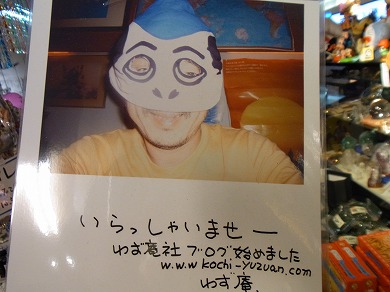 いらっしゃいませー
わず庵社ブログ始めました
www.kochi-yuzuan.com
わず庵、